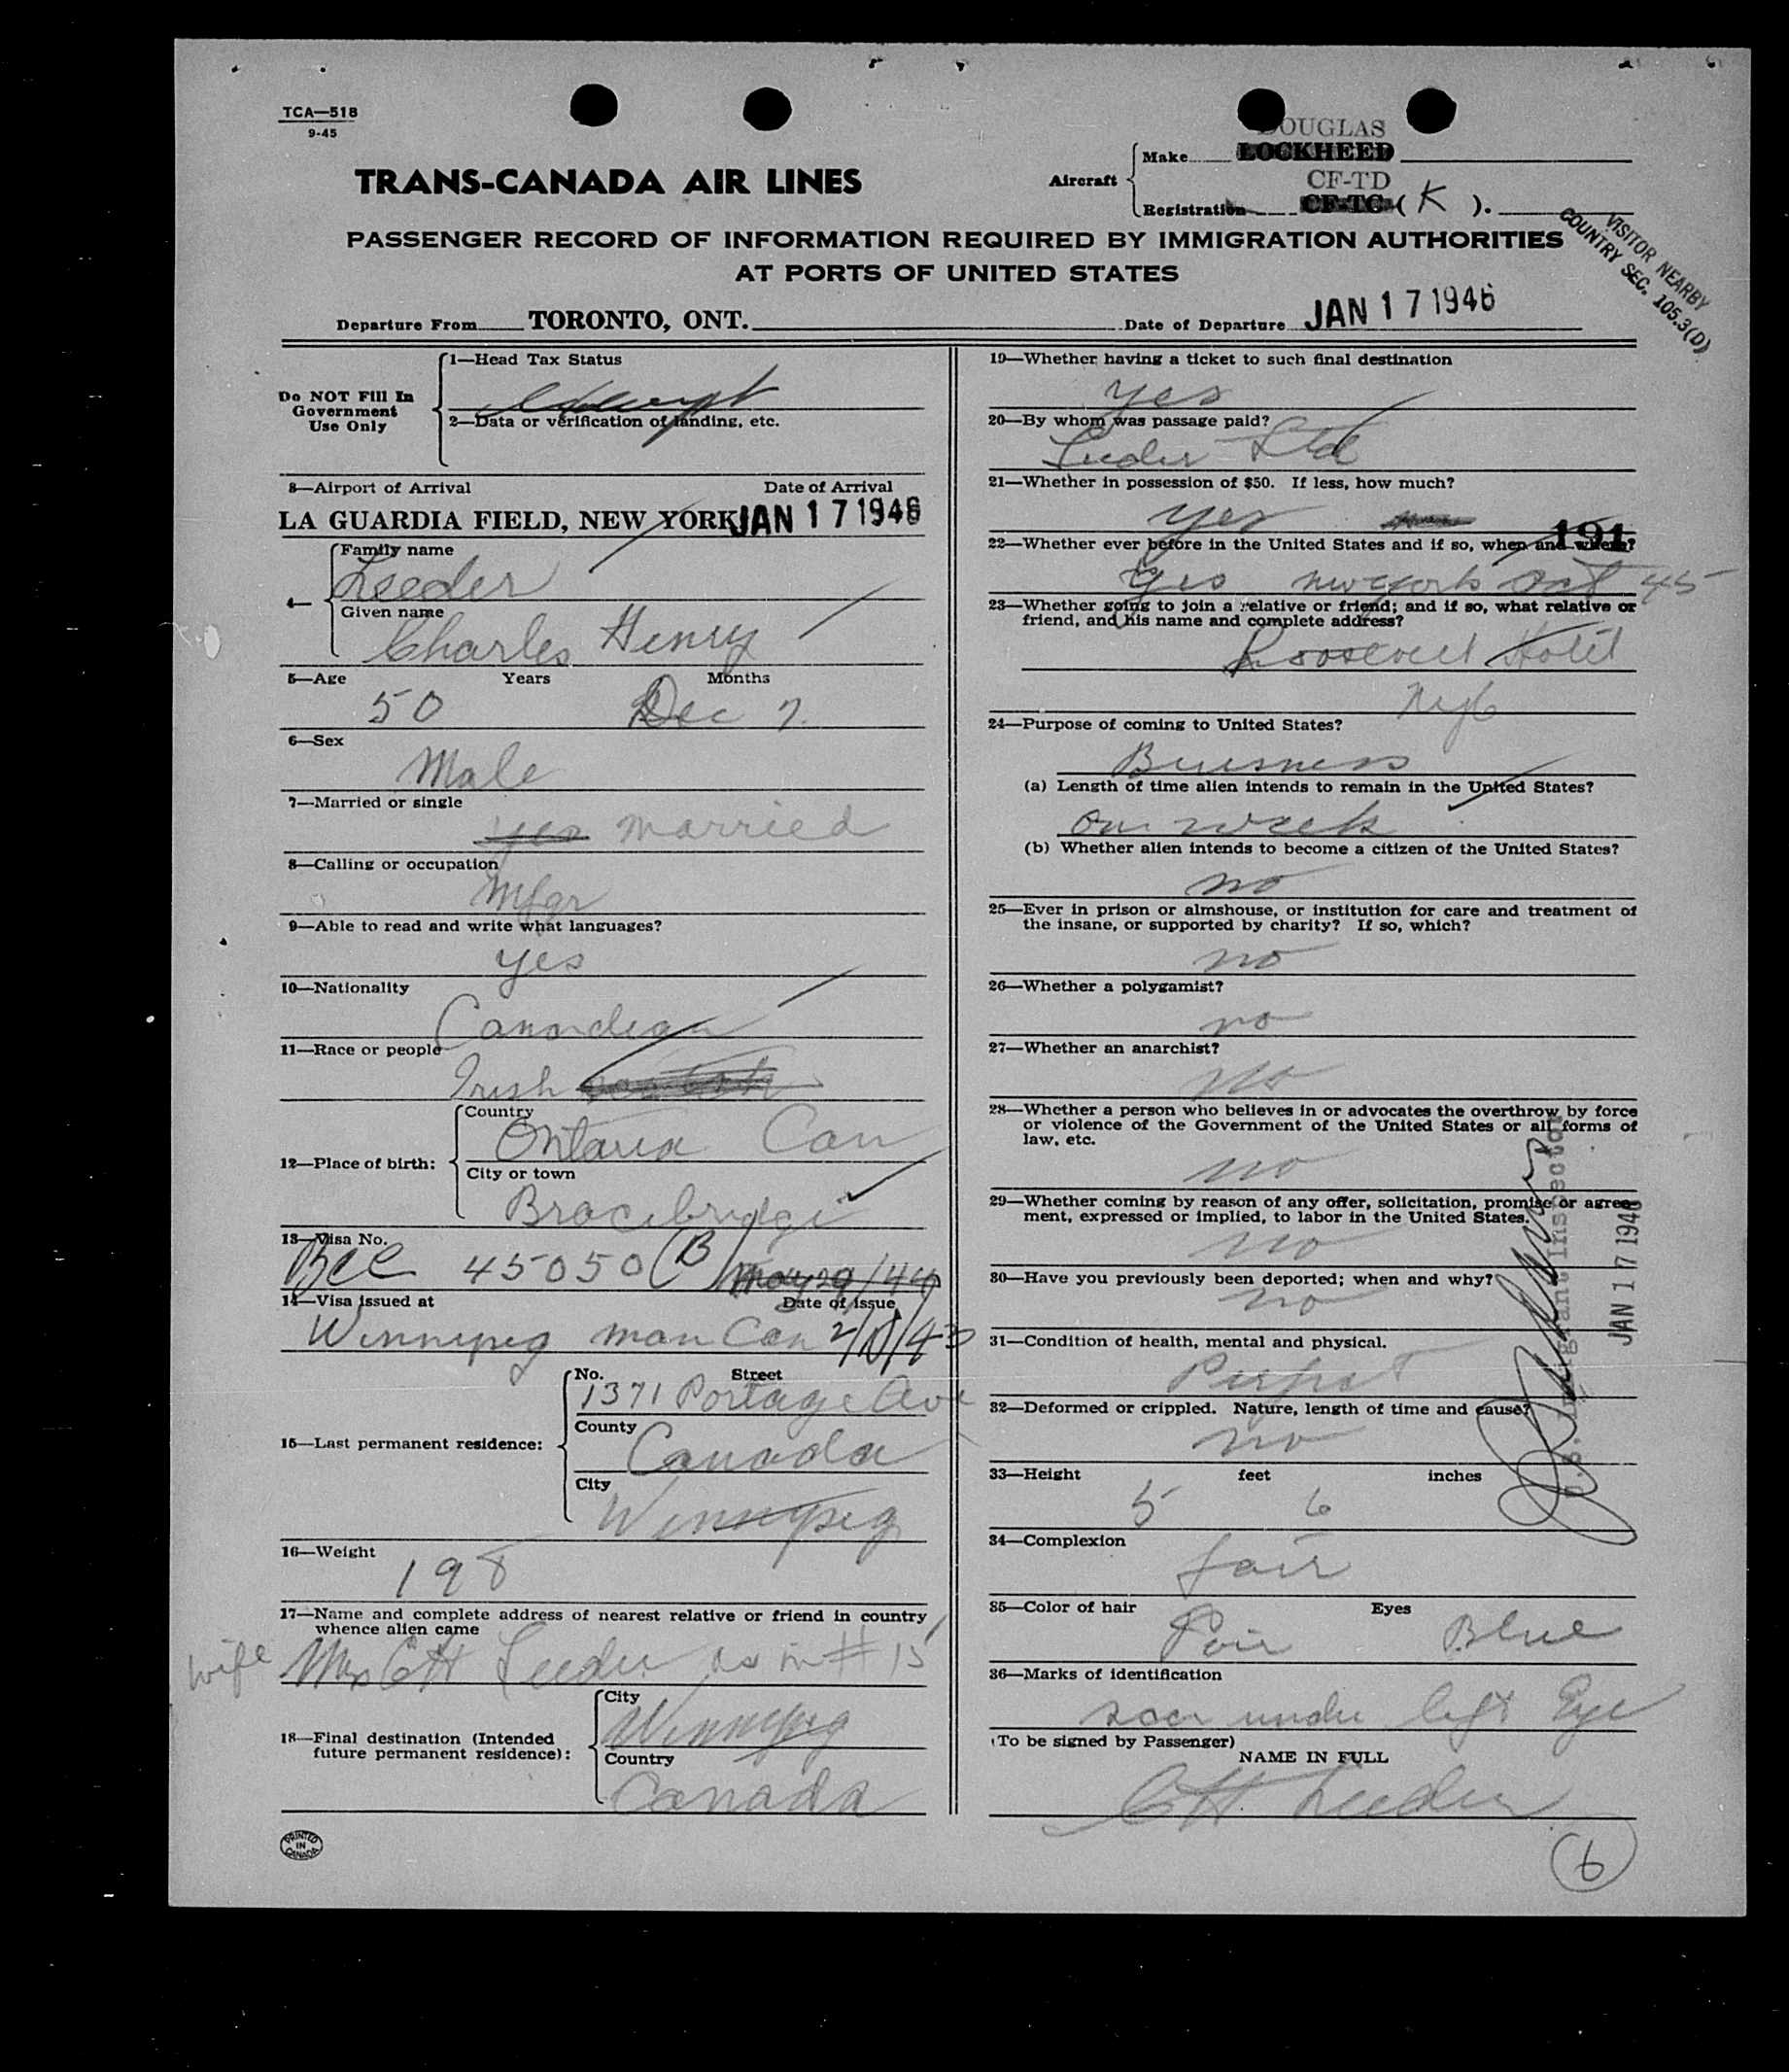 TCA—518
9-45
TRANS-CANADA AIR LINES
Aircraft
Make
DOUGLAS
LOCKHEED
CF-TD
Registration CF-TC- ( K ).
PASSENGER RECORD OF INFORMATION REQUIRED BY IMMIGRATION AUTHORITIES
AT PORTS OF UNITED STATES
VISITOR NEARBY
COUNTRY SEC. 105.3(D)
Departure From TORONTO, ONT.
Date of Departure JAN 17 1946
Do NOT Fill In
Government
Use Only
1—Head Tax Status
Exempt
2—Data or verification of landing, etc.
3—Airport of Arrival Date of Arrival
LA GUARDIA FIELD, NEW YORK JAN 17 1946
4—
Family name
Leeder
Given name
Charles Henry
5—Age Years Months
50 Dec 7
6—Sex
Male
7—Married or single
yes married
8—Calling or occupation
Mfgr
9—Able to read and write what languages?
yes
10—Nationality
Canadian
11—Race or people
Irish
12—Place of birth:
Country
Ontario Can
City or town
Bracebridge
13—Visa No.
BCC 45050 (B) May 29/44
14—Visa issued at Date of issue
Winnipeg Man Can
15—Last permanent residence:
No. Street
1371 Portage Ave
County
Canada
City
Winnipeg
16—Weight
198
17—Name and complete address of nearest relative or friend in country
whence alien came
wife Mrs CH Leeder as in # 15
18—Final destination (Intended
future permanent residence):
City
Winnipeg
Country
Canada
PRINTED
IN
CANADA
19—Whether having a ticket to such final destination
yes
20—By whom was passage paid?
Leeder Ltd
21—Whether in possession of $50. If less, how much?
yes
191
22—Whether ever before in the United States and if so, when and where?
yes new york Oct 45
23—Whether going to join a relative or friend; and if so, what relative or
friend, and his name and complete address?
Roosevelt Hotel
Nyc
24—Purpose of coming to United States?
Buisness
(a) Length of time alien intends to remain in the United States?
One week
(b) Whether alien intends to become a citizen of the United States?
no
25—Ever in prison or almshouse, or institution for care and treatment of
the insane, or supported by charity? If so, which?
no
26—Whether a polygamist?
no
27—Whether an anarchist?
no
28—Whether a person who believes in or advocates the overthrow by force
or violence of the Government of the United States or all forms of
law, etc.
no
29—Whether coming by reason of any offer, solicitation, promise or agree-
ment, expressed or implied, to labor in the United States.
no
30—Have you previously been deported; when and why?
no
31—Condition of health, mental and physical.
Perfect
32—Deformed or crippled. Nature, length of time and cause?
no
U.S. Immigrant Inspector
JAN 17 1946
33—Height feet inches
5 6
34—Complexion
fair
35—Color of hair Eyes
Fair Blue
36—Marks of identification
scar under left Eye
(To be signed by Passenger)
NAME IN FULL
CH Leeder
6